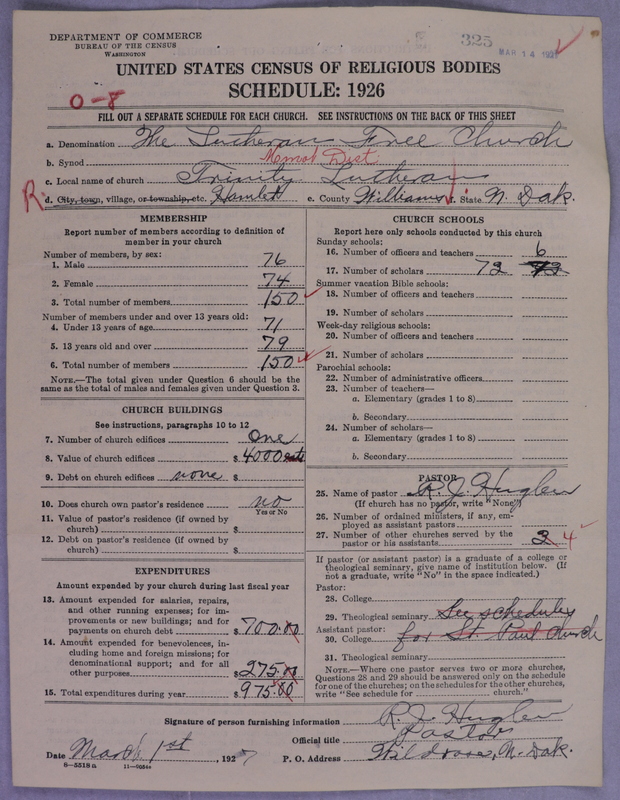 DEPARTMENT OF COMMERCE
BUREAU OF THE CENSUS
WASHINGTON
325
MAR 14 1927
UNITED STATES CENSUS OF RELIGIOUS BODIES
SCHEDULE: 1926
0-8
FILL OUT A SEPARATE SCHEDULE FOR EACH CHURCH. SEE INSTRUCTIONS ON THE BACK OF THIS SHEET
a. Denomination The Lutheran Free Church
b. Synod Minot Dist.
c. Local name of church Trinity Lutheran
R d. City, town, village, or township, etc. Hamlet e. County Williams f. State N. Dak.
MEMBERSHIP
Report number of members according to definition of
member in your church
Number of members, by sex:
1. Male 76
2. Female 74
3. Total number of members 150
Number of members under and over 13 years old:
4. Under 13 years of age 71
5. 13 years old and over 79
6. Total number of members 150
NOTE.—The total given under Question 6 should be
same as the total of males and females given under Question 3.
CHURCH BUILDINGS
See instructions, paragraphs 10 to 12
7. Number of church edifices One
8. Value of church edifices $ 4000
9. Debt on church edifices none $
10. Does church own pastor's residence no
Yes or No
11. Value of pastor's residence (if owned by
church) $
12. Debt on pastor's residence (if owned by
church) $
EXPENDITURES
Amount expended by your church during last fiscal year
13. Amount expended for salaries, repairs,
and other running expenses; for im-
provements or new buildings; and for
payments on church debt $ 700.00
14. Amount expended for benevolences, in-
cluding home and foreign missions; for
denominational support; and for all
other purposes $ 275.00
15. Total expenditures during year $ 975.00
CHURCH SCHOOLS
Report here only schools conducted by this church
Sunday schools:
16. Number of officers and teachers 6
17. Number of scholars 72 72
Summer vacation Bible schools:
18. Number of officers and teachers
19. Number of scholars
Week-day religious schools:
20. Number of officers and teachers
21. Number of scholars
Parochial schools:
22. Number of administrative officers
23. Number of teachers—
a. Elementary (grades 1 to 8)
b. Secondary
24. Number of scholars—
a. Elementary (grades 1 to 8)
b. Secondary
PASTOR
25. Name of pastor R. J. Huglen
(If church has no pastor, write "None")
26. Number of ordained ministers, if any, em-
ployed as assistant pastors
27. Number of other churches served by the
pastor or his assistants 3 4
If pastor (or assistant pastor) is a graduate of a college or
theological seminary, give name of institution below. (If
not a graduate, write "No" in the space indicated.)
Pastor:
28. College
29. Theological seminary See schedule
Assistant pastor: for St. Paul Church
30. College
31. Theological seminary
NOTE.—Where one pastor serves two or more churches,
Questions 28 and 29 should be answered only on the schedule
for one of the churches; on the schedules for the other churches,
write "See schedule for church."
Signature of person furnishing information R. J. Huglen
Official title Pastor
Date March 1st, 1927 P. O. Address Wildrose, N. Dak.
8-5518 a